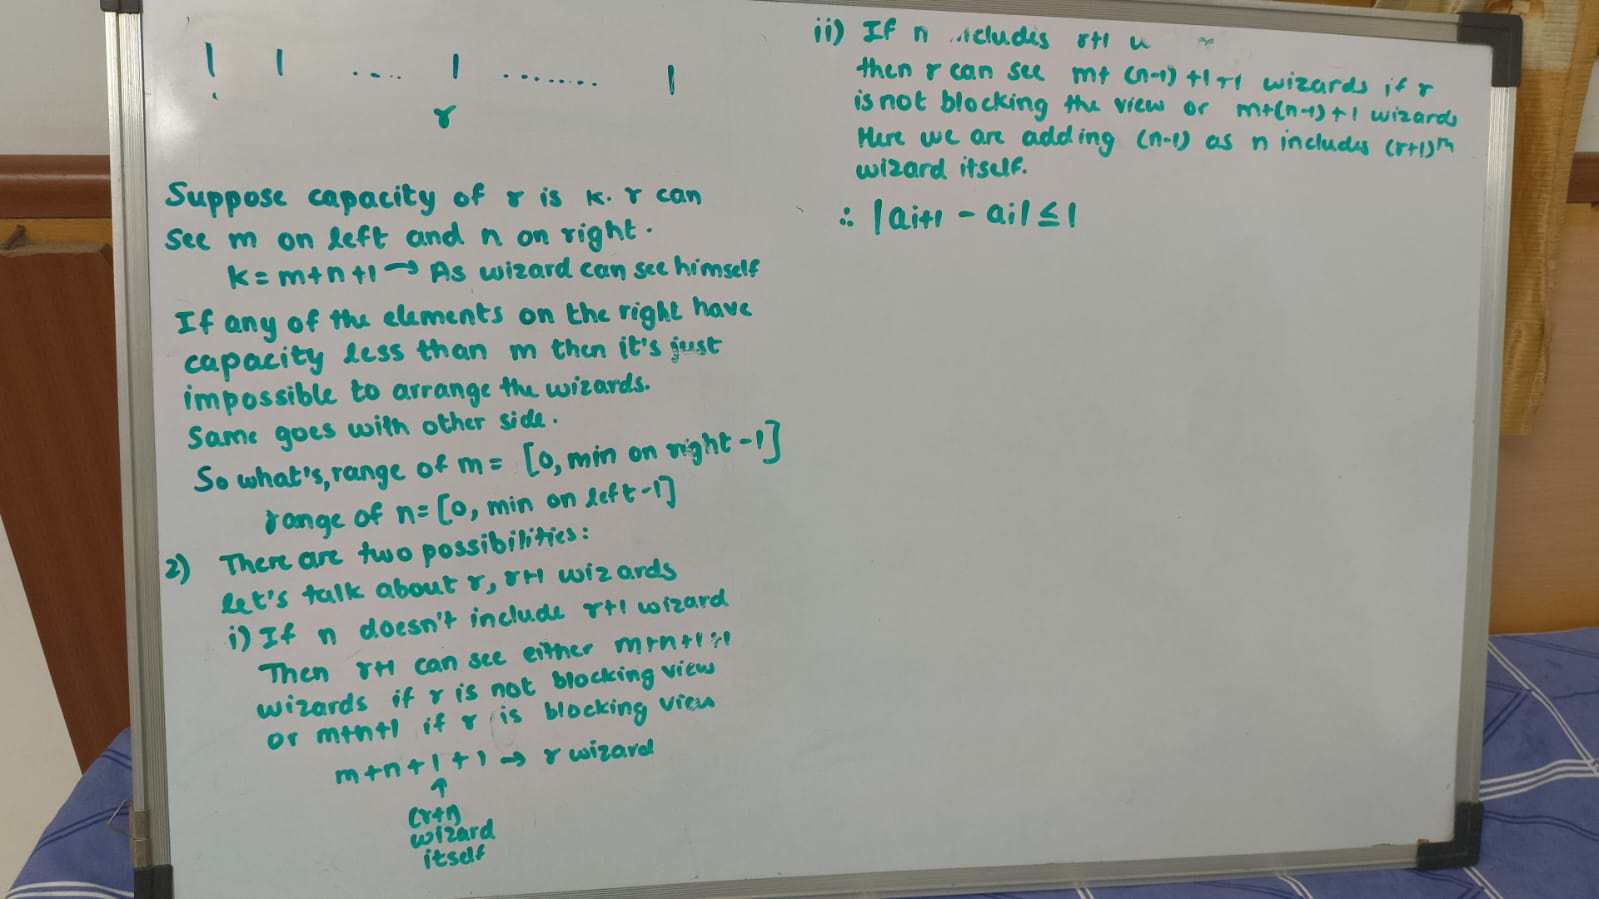 r
Suppose capacity of r is k. r can
see m on left and n on right.
k = m+n+1 → As wizard can see himself
If any of the elements on the right have
capacity less than m then it's just
impossible to arrange the wizards.
Same goes with other side.
So what's, range of m = [0, min on right -1]
range of n = [0, min on left -1]
2) There are two possibilities:
Let's talk about r, r+1 wizards
i) If n doesn't include r+1 wizard
Then r+1 can see either m+n+1+1
wizards if r is not blocking view
or m+n+1 if r is blocking view
m+n+1+1 → r wizard
↑
wizard
itself
ii) If n r+1
then r can see m+(n-1)+1+1 wizards if r
is not blocking the view or m+(n-1)+1 wizards
Here we are adding (n-1) as n includes (r+1)th
wizard itself.
∴ |ai+1 - ai| ≤ 1